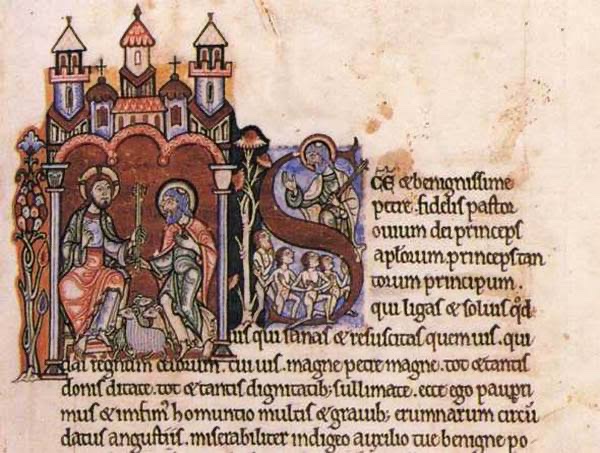 SC̄E & benignissime
petre. fidelis pastor
ouium dei princeps
apl̄orum. princeps tan
torum principum.
qui ligas & soluis qd̄
uis qui sanas & resuscitas quem uis. qui
das regnum celorum. cui uis. magne petre magne. tot & tantis
donis ditate. tot & tantis dignitatib; sullimate. ecce ego pauperri
mus & infim' homuntio multis & grauib; erumnarum circū
datus angustiis. miserabiliter indigeo auxilio tue benigne po-